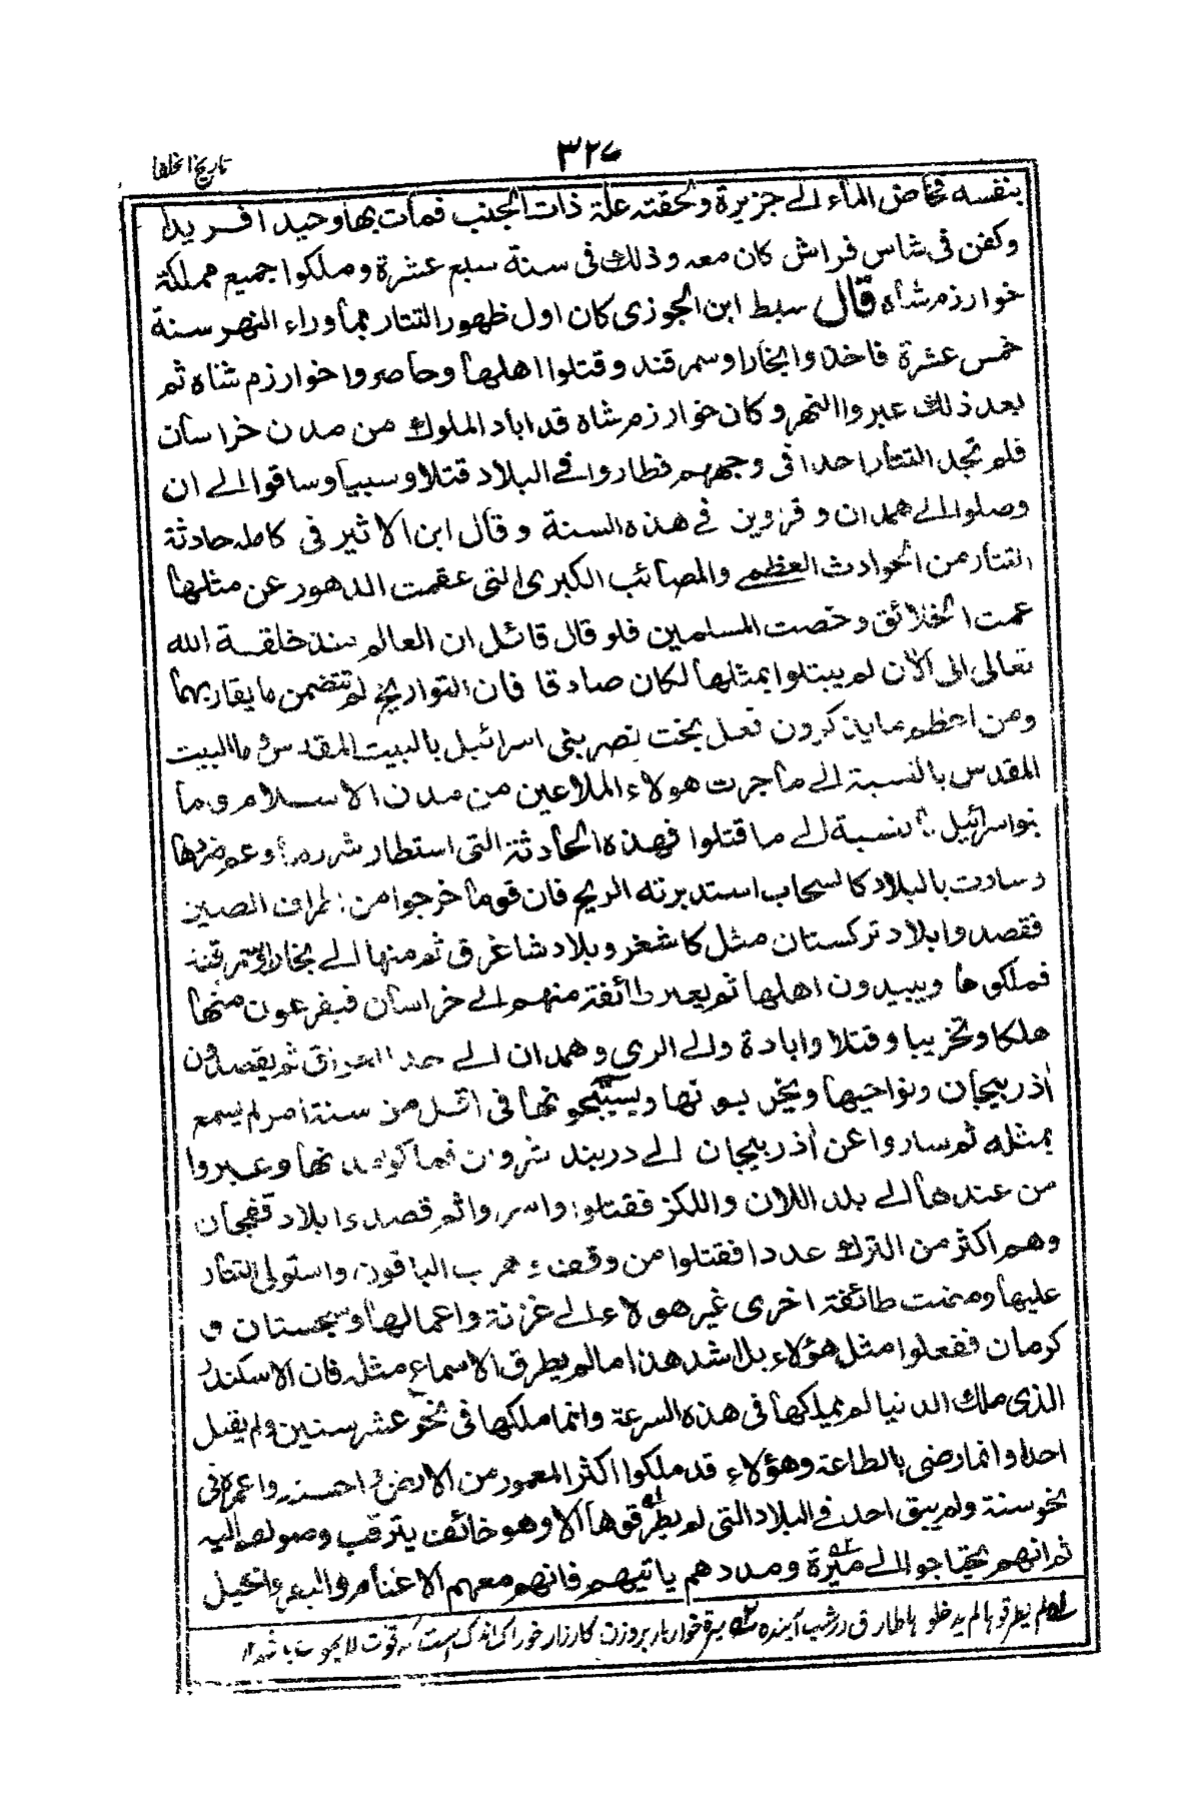 تاريخ الخلفا
٣٢٧
بنفسه فخاض الماء الے جزيرة ولحقته علة ذات الجنب فمات بها وحيدا فريدا
وكفن فى شاس فراش كان معه وذلك فى سنة سبع عشرة وملكوا جميع مملكة
خوارزم شاه قال سبط ابن الجوزى كان اول ظهور التتار بماوراء النهر سنة
خمس عشرة فاخذوا بخارا وسمرقند وقتلوا اهلها وحاصروا خوارزم شاه ثم
بعد ذلك عبروا النهر وكان خوارزم شاه قد اباد الملوك من مدن خراسان
فلم تجد التتار احدا فى وجههم فطاروا فے البلاد قتلا وسبيا وساقوا الے ان
وصلوا الے همدان وقزوين فے هذه السنة وقال ابن الاثير فى كامله حادثة
التتار من الحوادث العظمے والمصائب الكبرى التى عقمت الدهور عن مثلها
عمت الخلائق وخصت المسلمين فلو قال قائل ان العالم منذ خلقه الله
تعالى الى الآن لم يبتلوا بمثلها لكان صادقا فان التواريخ لم تتضمن ما يقاربها
ومن اعظم ما يذكرون فعل بخت نصر ببنى اسرائيل بالبيت المقدس وما البيت
المقدس بالنسبة الے ما جرت هولاء الملاعين من مدن الاسلام وما
بنو اسرائيل بالنسبة الے ما قتلوا فهذه الحادثة التى استطار شررها وعم ضررها
وسارت بالبلاد كالسحاب استدبرته الريح فان قوما خرجوا من اطراف الصين
فقصدوا بلاد تركستان مثل كاشغر وبلاد شاغرق ثم منها الے بخارا وسمرقند
فملكوها ويبيدون اهلها ثم يعبر طائفة منهم الے خراسان فيفرعون منها
هلكا وتخريبا وقتلا وابادة والے الرى وهمدان الے حد العراق ثم يقصدون
أذربيجان ونواحيها ويخربونها ويستبيحونها فى اقل من سنة امر لم يسمع
بمثله ثم ساروا عن أذربيجان الے دربند شروان فملكوا مدنها وعبروا
من عندها الے بلد اللان واللكز فقتلوا واسروا ثم قصدوا بلاد قفجان
وهم اكثر من الترك عددا فقتلوا من وقف وهرب الباقون واستولى التتار
عليها ومضت طائفة اخرى غير هولاء الے غزنة واعمالها وسجستان و
كرمان ففعلوا مثل هؤلاء بل اشد هذا ما لم يطرق الاسماع مثله فان الاسكندر
الذى ملك الدنيا لم يملكها فى هذه السرعة وانما ملكها فى نحو عشر سنين ولم يقتل
احدا وانما رضى بالطاعة وهؤلاء قد ملكوا اكثر المعمور من الارض واحسنه واعمره فى
نحو سنة ولم يبق احد فے البلاد التى لم يطرقوها الا وهو خائف يترقب وصولهم اليه
ثم انهم لم يحتاجوا الے ميرة ومددهم ياتيهم فانهم معهم الاغنام والبقر والخيل
له لم يطرقوها لم يدخلوها طارق درشب آينده ٢ه ميرة خواربار بروزن كارزار خوراكى اندك است كه قوت لا يموت باشد ١٢